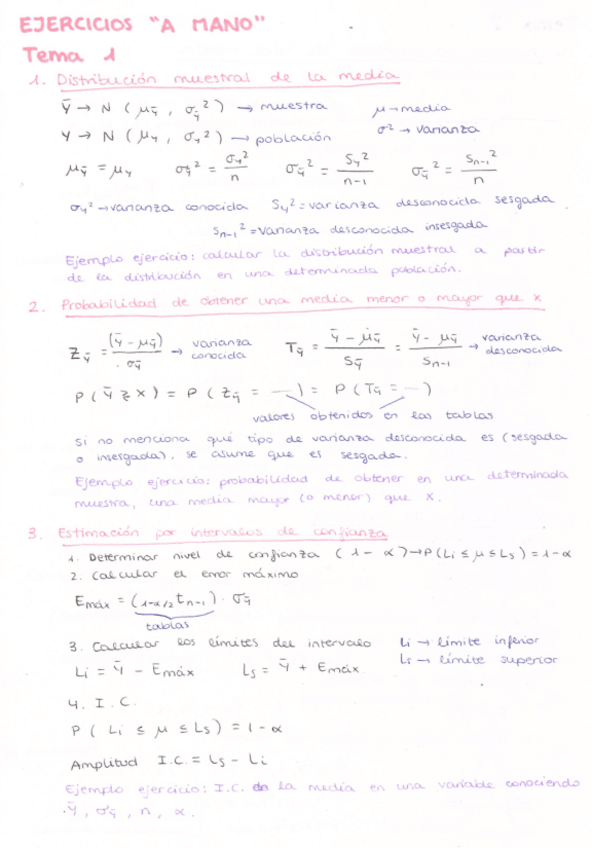 EJERCICIOS "A MANO"
Tema 1
1. Distribución muestral de la media
Ȳ → N ( μȳ , σȳ² ) → muestra μ → media
Y → N ( μy , σy² ) → población σ² → varianza
μȳ = μy σȳ² = σy²/n σȳ² = Sy²/n-1 σȳ² = Sn-1²/n
σy² → varianza conocida Sy² = varianza desconocida sesgada
Sn-1² = varianza desconocida insesgada
Ejemplo ejercicio: calcular la distribución muestral a partir
de la distribución en una determinada población.
2. Probabilidad de obtener una media menor o mayor que x
Zȳ = (ȳ - μȳ)/σȳ → varianza conocida Tȳ = ȳ - μȳ/Sȳ = ȳ - μȳ/Sn-1 → varianza desconocida
P ( ȳ ≷ x ) = P ( Zȳ = — ) = P ( Tȳ = — )
valores obtenidos en las tablas
Si no menciona qué tipo de varianza desconocida es (sesgada
o insesgada), se asume que es sesgada.
Ejemplo ejercicio: probabilidad de obtener en una determinada
muestra, una media mayor (o menor) que x.
3. Estimación por intervalos de confianza
1. Determinar nivel de confianza ( 1 - α ) → P ( Li ≤ μ ≤ Ls ) = 1 - α
2. Calcular el error máximo
Emáx = ( 1-α/2 t n-1 ) · σȳ
tablas
3. Calcular los límites del intervalo Li → límite inferior
Ls → límite superior
Li = ȳ - Emáx Ls = ȳ + Emáx
4. I.C.
P ( Li ≤ μ ≤ Ls ) = 1 - α
Amplitud I.C. = Ls - Li
Ejemplo ejercicio: I.C. de la media en una variable conociendo
ȳ, σȳ, n, α.